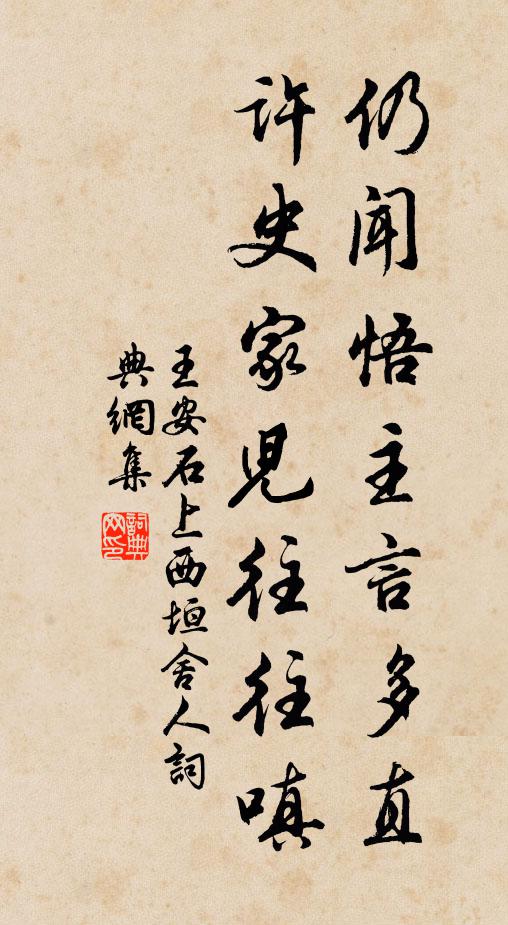 仍闻悟主言多直
许史家儿往往嗔
王安石上西垣舍人詞
典網集
詞典網印